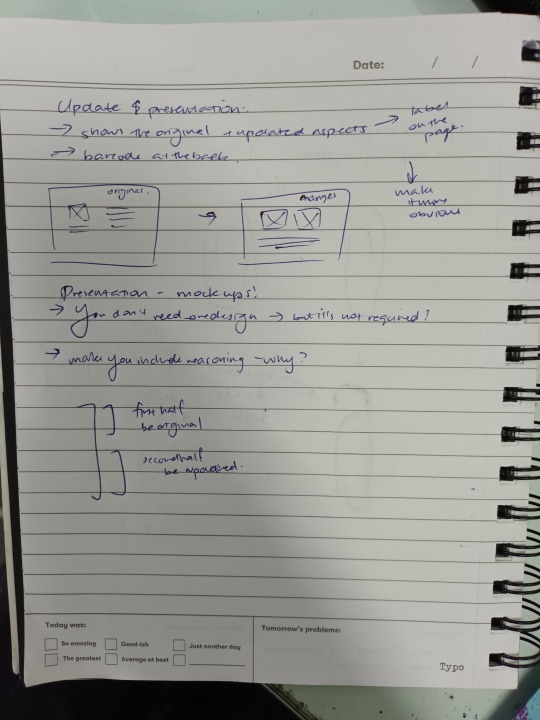 Date: / /
Update & presentation.
→ show the original + updated aspects → label
on the
page.
→ barcode at the back.
↓
make
it more
obvious
original.
→
changes
Presentation - mockups!
→ You don't need redesign → but it's not required!
→ make you include reasoning - why?
first half
be original
second half
be updated.
Today was:
So amazing
Good-ish
Just another day
The greatest
Average at best
Tomorrow's problems:
Typo